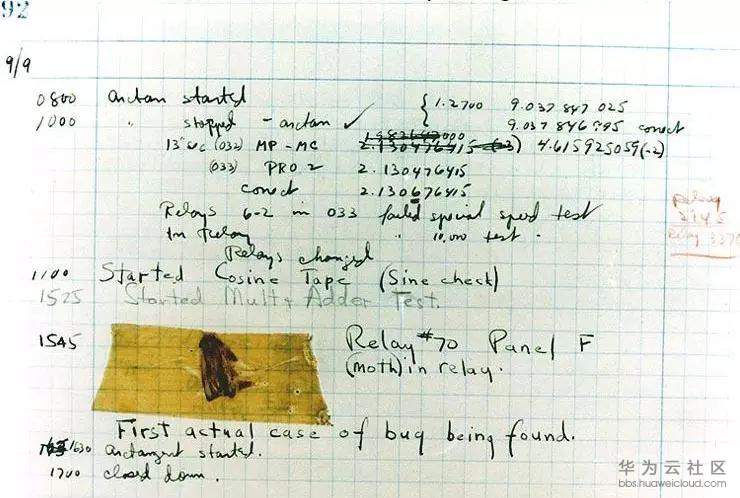 92
9/9
0800 arctan started
1000 " stopped - arctan ✓ { 1.2700 9.037 847 025
9.037 846 995 conect
13"uc (032) MP - MC 2.130476415 4.615925059(-2)
(033) PRO 2 2.130476415
conect 2.130676415
Relays 6-2 in 033 failed special speed test
In Relay " 10,000 test .
Relays changed
1100 Started Cosine Tape (Sine check)
1525 Started Mult + Adder Test.
1545 Relay #70 Panel F
(moth) in relay.
First actual case of bug being found.
1630 arctangent started.
1700 closed down.
Relay
2145
Relay 3370
华为云社区
bbs.huaweicloud.com